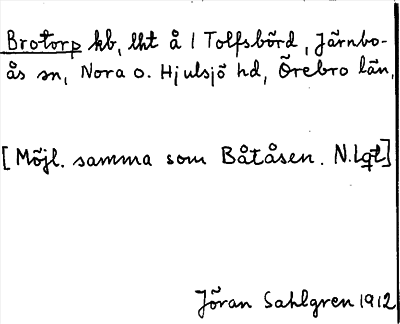 Brotorp kb, lht å 1 Tolfsbörd, Järnbo-
ås sn, Nora o. Hjulsjö hd, Örebro län.
[Möjl. samma som Båtåsen. N.Lqt.]
Jöran Sahlgren 1912